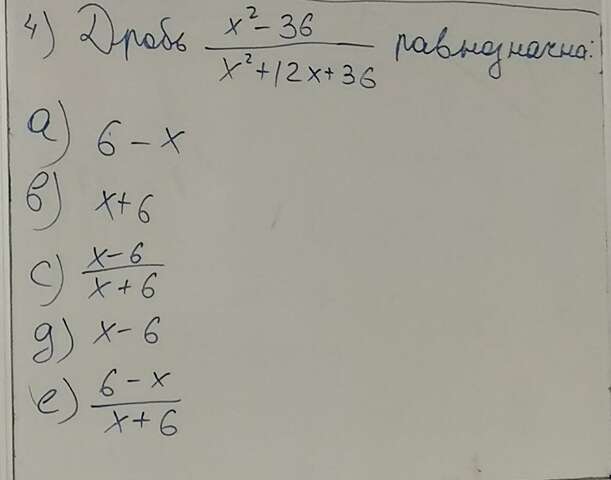 4) Дробь \frac{x²-36}{x²+12x+36} равнозначна:
а) 6-x
в) x+6
с) \frac{x-6}{x+6}
д) x-6
е) \frac{6-x}{x+6}